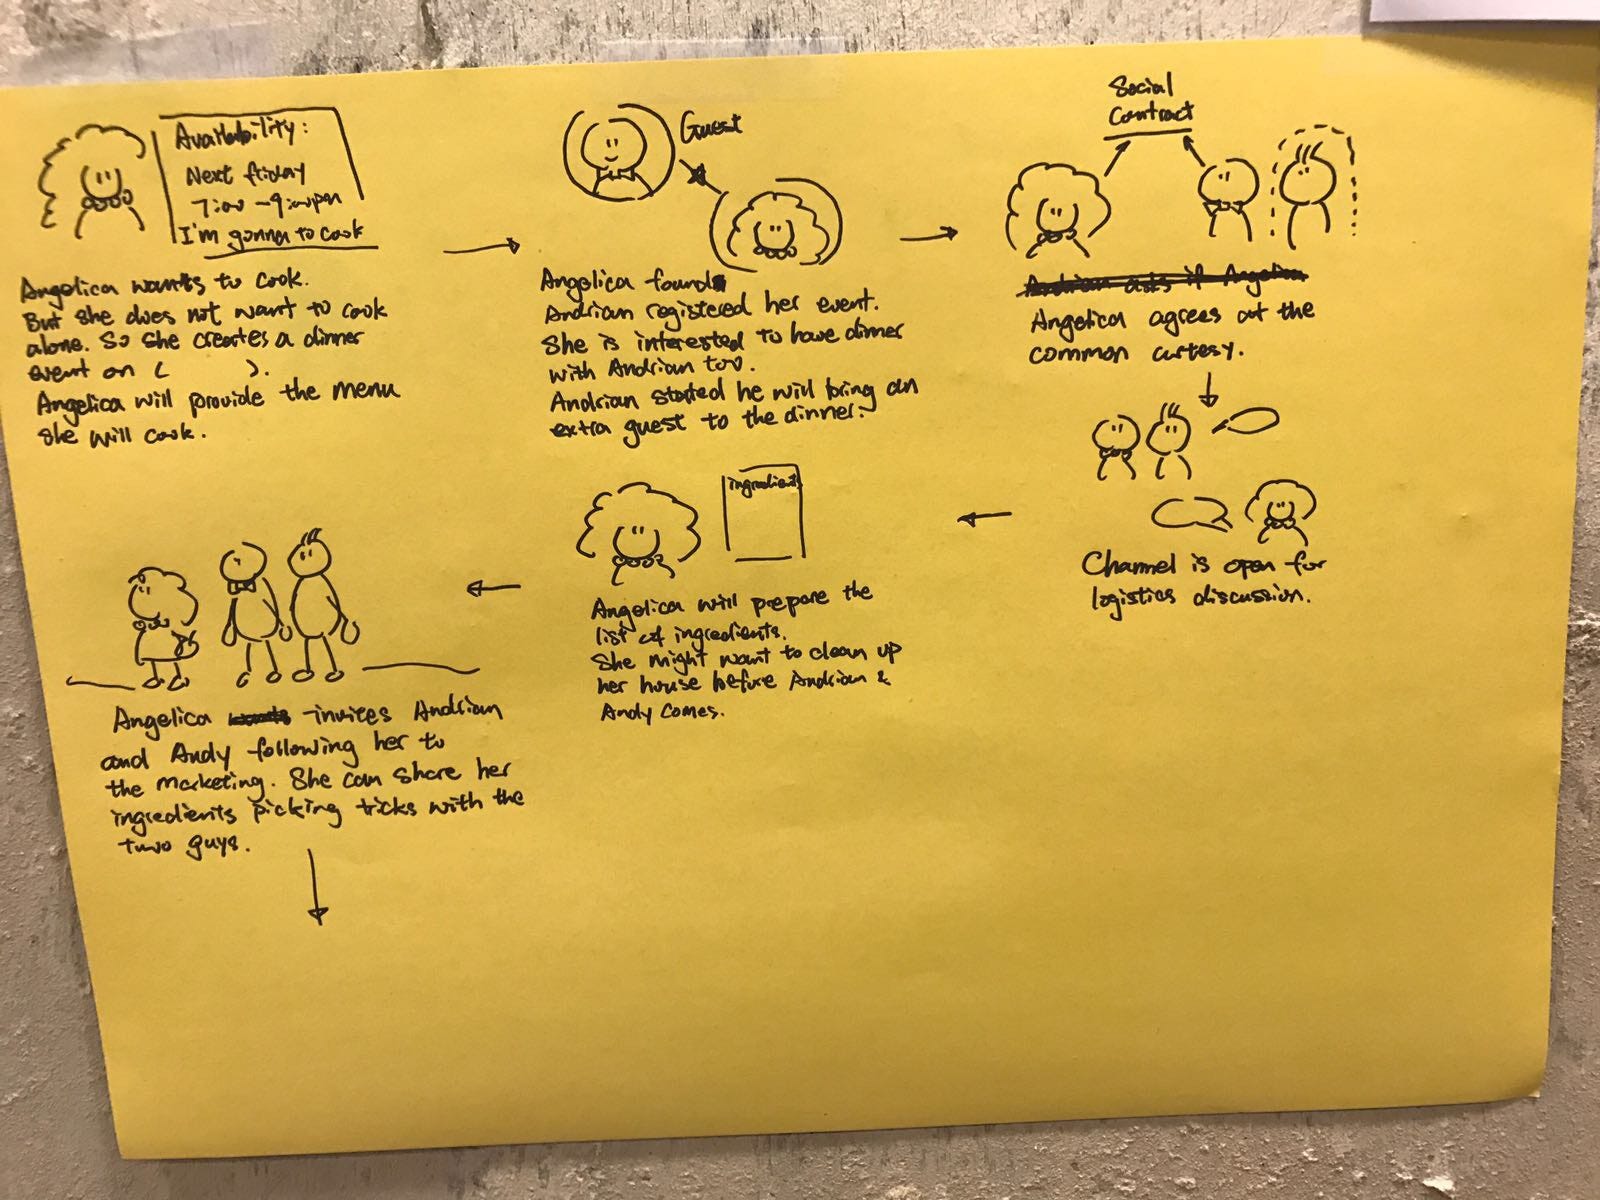 Availability:
Next friday
7:00 - 9:00pm
I'm gonna to cook
Angelica wants to cook.
But she does not want to cook
alone. So she creates a dinner
event on (        ).
Angelica will provide the menu
she will cook.
Guest
Angelica found
Andrian registered her event.
She is interested to have dinner
with Andrian too.
Andrian stated he will bring an
extra guest to the dinner.
Social
Contract
Andrian asks if Angelica
Angelica agrees at the
common curtesy.
Channel is open for
logistics discussion.
ingredients
Angelica will prepare the
list of ingredients.
She might want to clean up
her house before Andrian &
Andy comes.
Angelica wants invites Andrian
and Andy following her to
the marketing. She can share her
ingredients picking tricks with the
two guys.